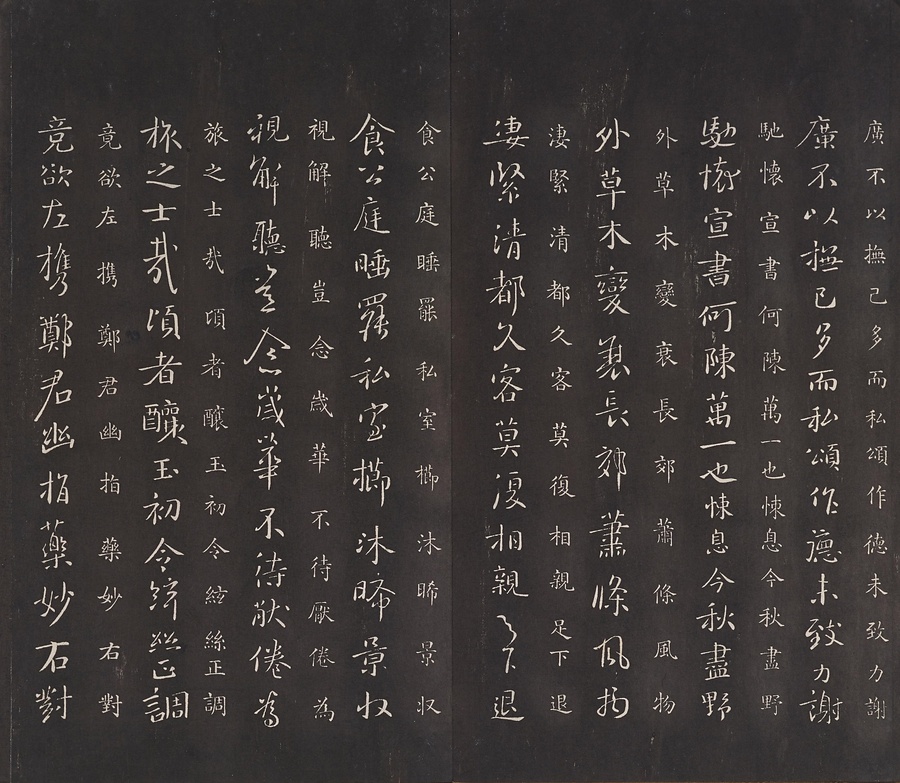 廣不以撫己多而私頌作德未致力謝
廣不以撫己多而私頌作德未致力謝
馳懷宣書何陳萬一也悚息今秋盡野
馳懷宣書何陳萬一也悚息今秋盡野
外草木變衰長郊蕭條風物
外草木變衰長郊蕭條風物
淒緊清都久客莫復相親足下退
淒緊清都久客莫復相親足下退
食公庭睡罷私室櫛沐晞景收
食公庭睡罷私室櫛沐晞景收
視解聽豈念歲華不待厭倦為
視解聽豈念歲華不待厭倦為
旅之士哉頃者釀玉初令絃絲正調
旅之士哉頃者釀玉初令絃絲正調
竟欲左携鄭君幽指藥妙右對
竟欲左携鄭君幽指藥妙右對